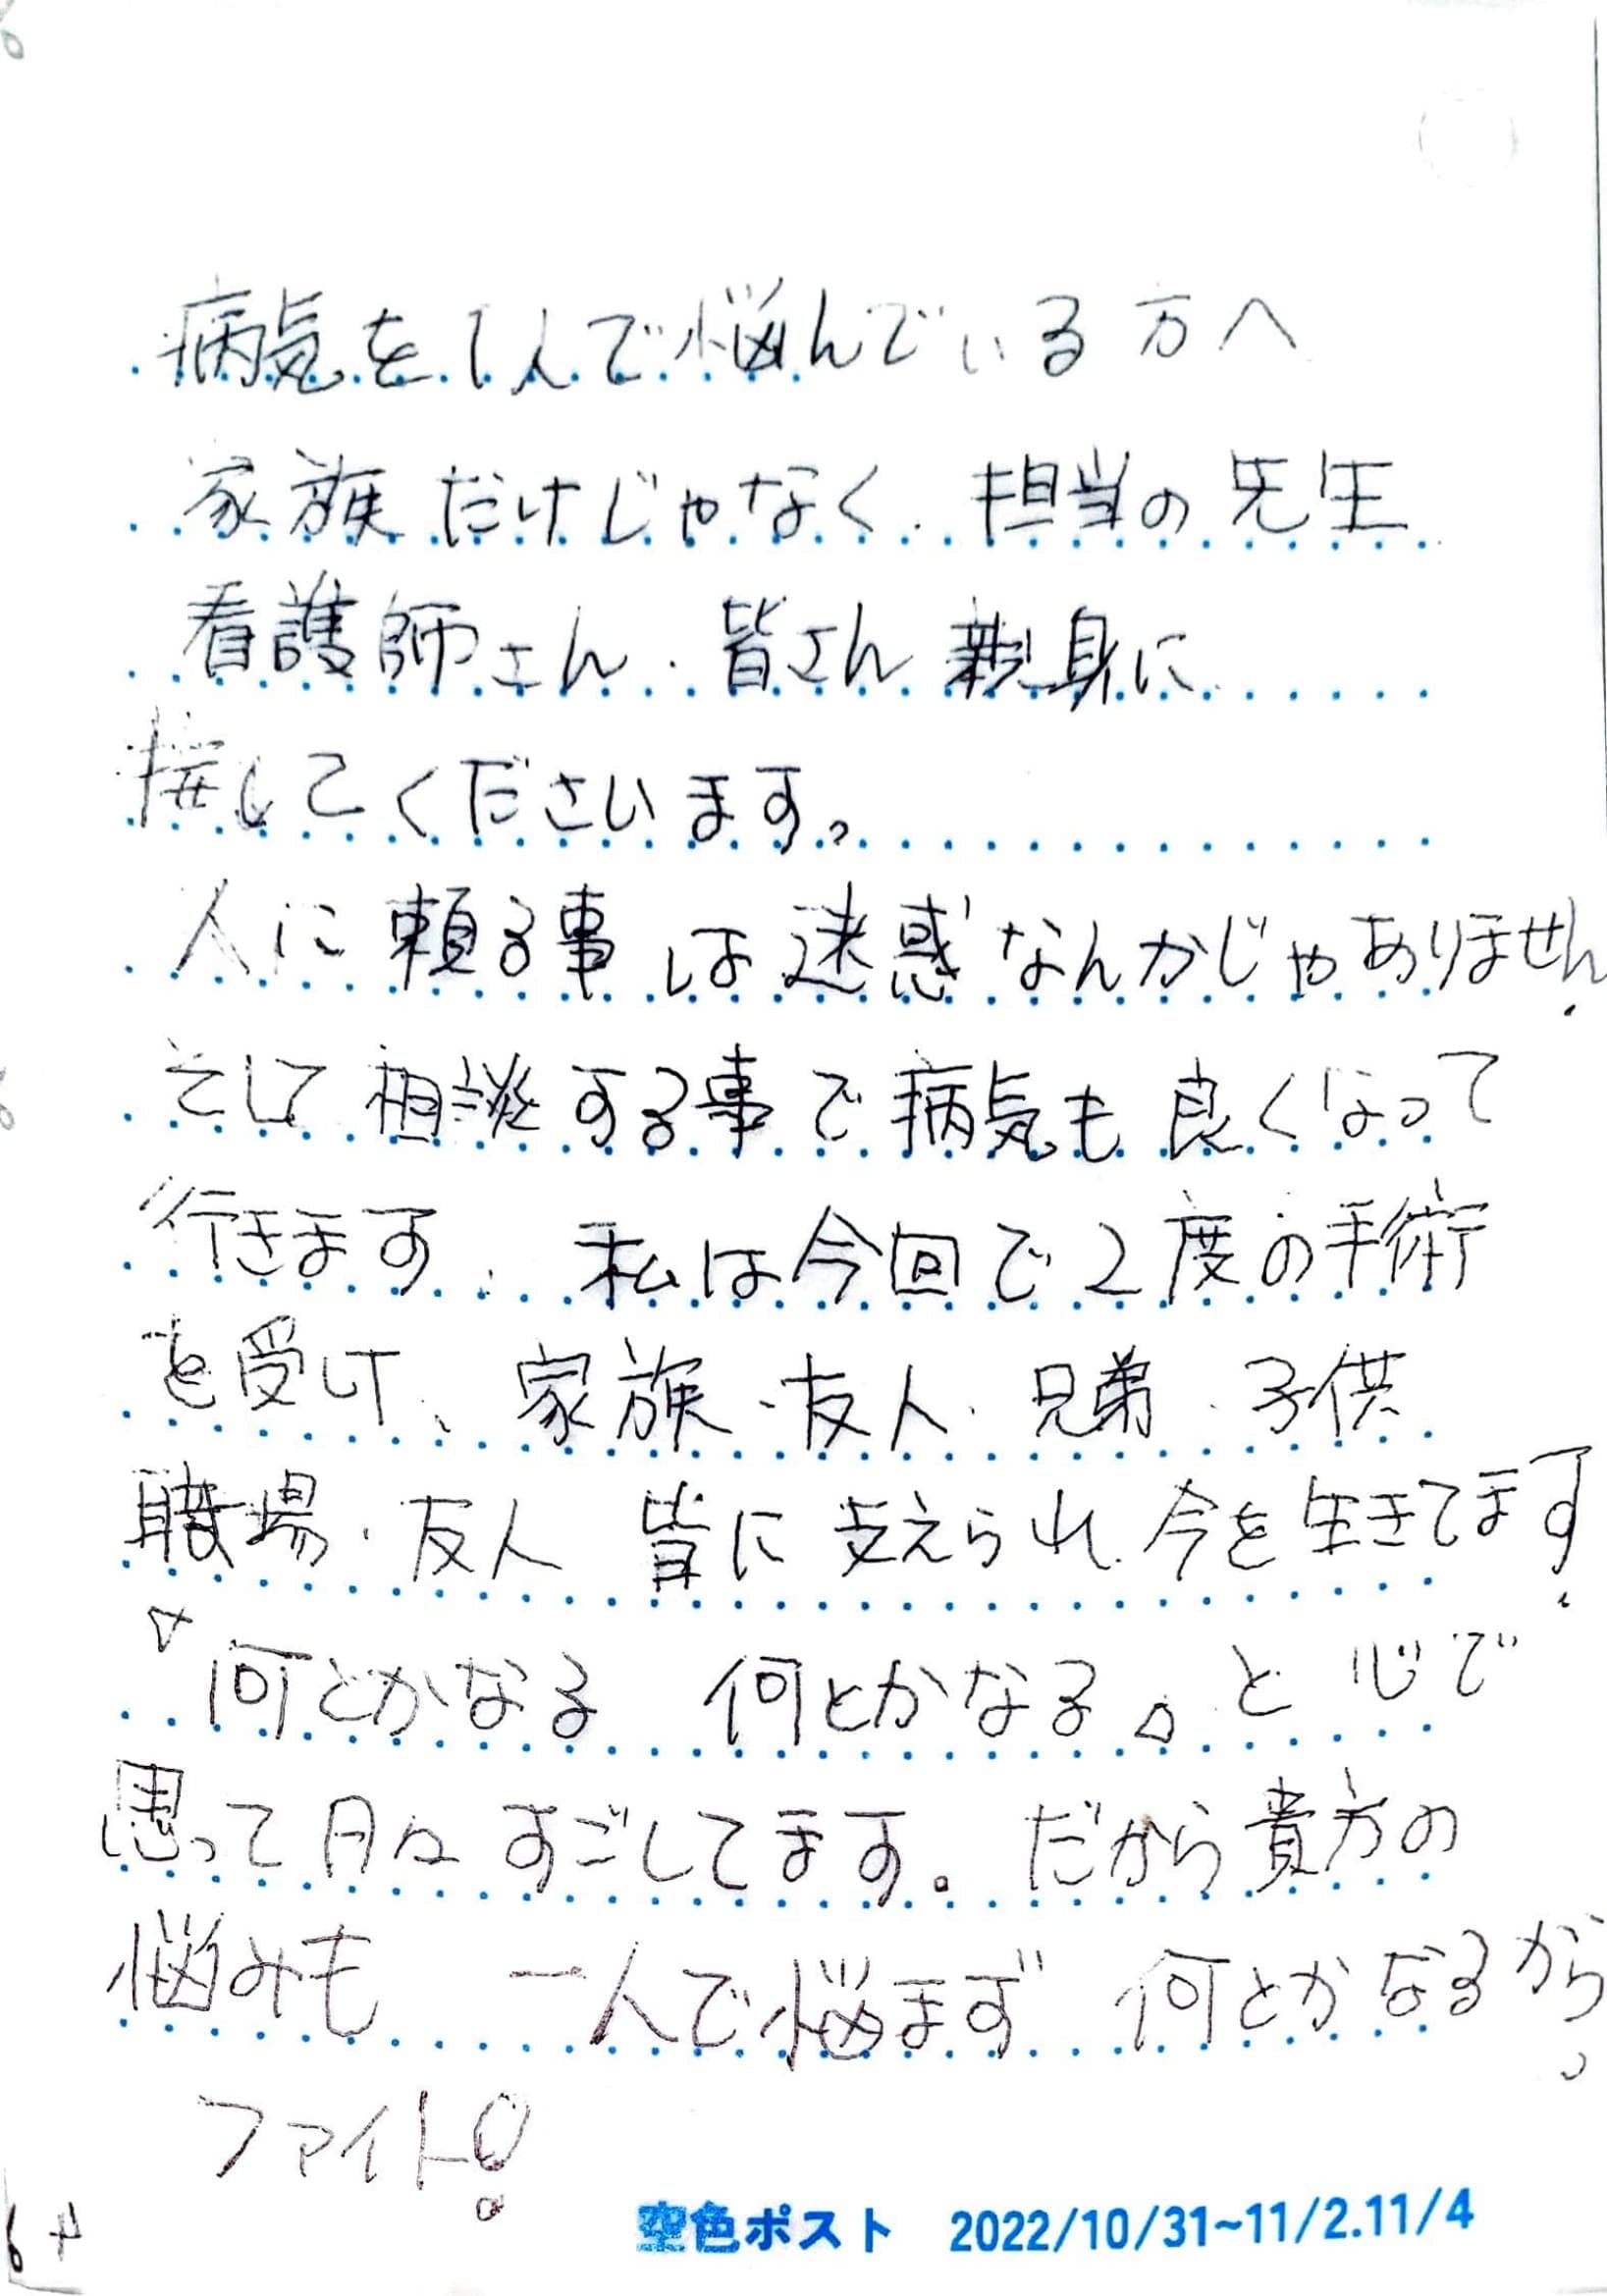 病気を1人で悩んでいる方へ
家族だけじゃなく、担当の先生
看護師さん、皆さん親身に
接してくださいます。
人に頼る事は迷惑なんかじゃありません。
そして相談する事で病気も良くなって
行きます、私は今回で2度の手術
を受け、家族・友人・兄弟・子供
職場・友人 皆に支えられ今を生きてます。
『何とかなる 何とかなる』と心で
思って日々すごしてます。だから貴方の
悩みも 一人で悩まず 何とかなるから。
ファイト!
空色ポスト 2022/10/31~11/2.11/4